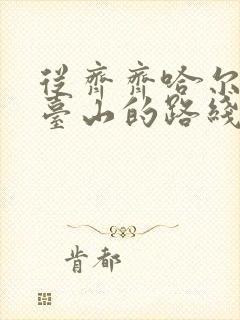 從齊齊哈尔
臺山的路綫
肯都